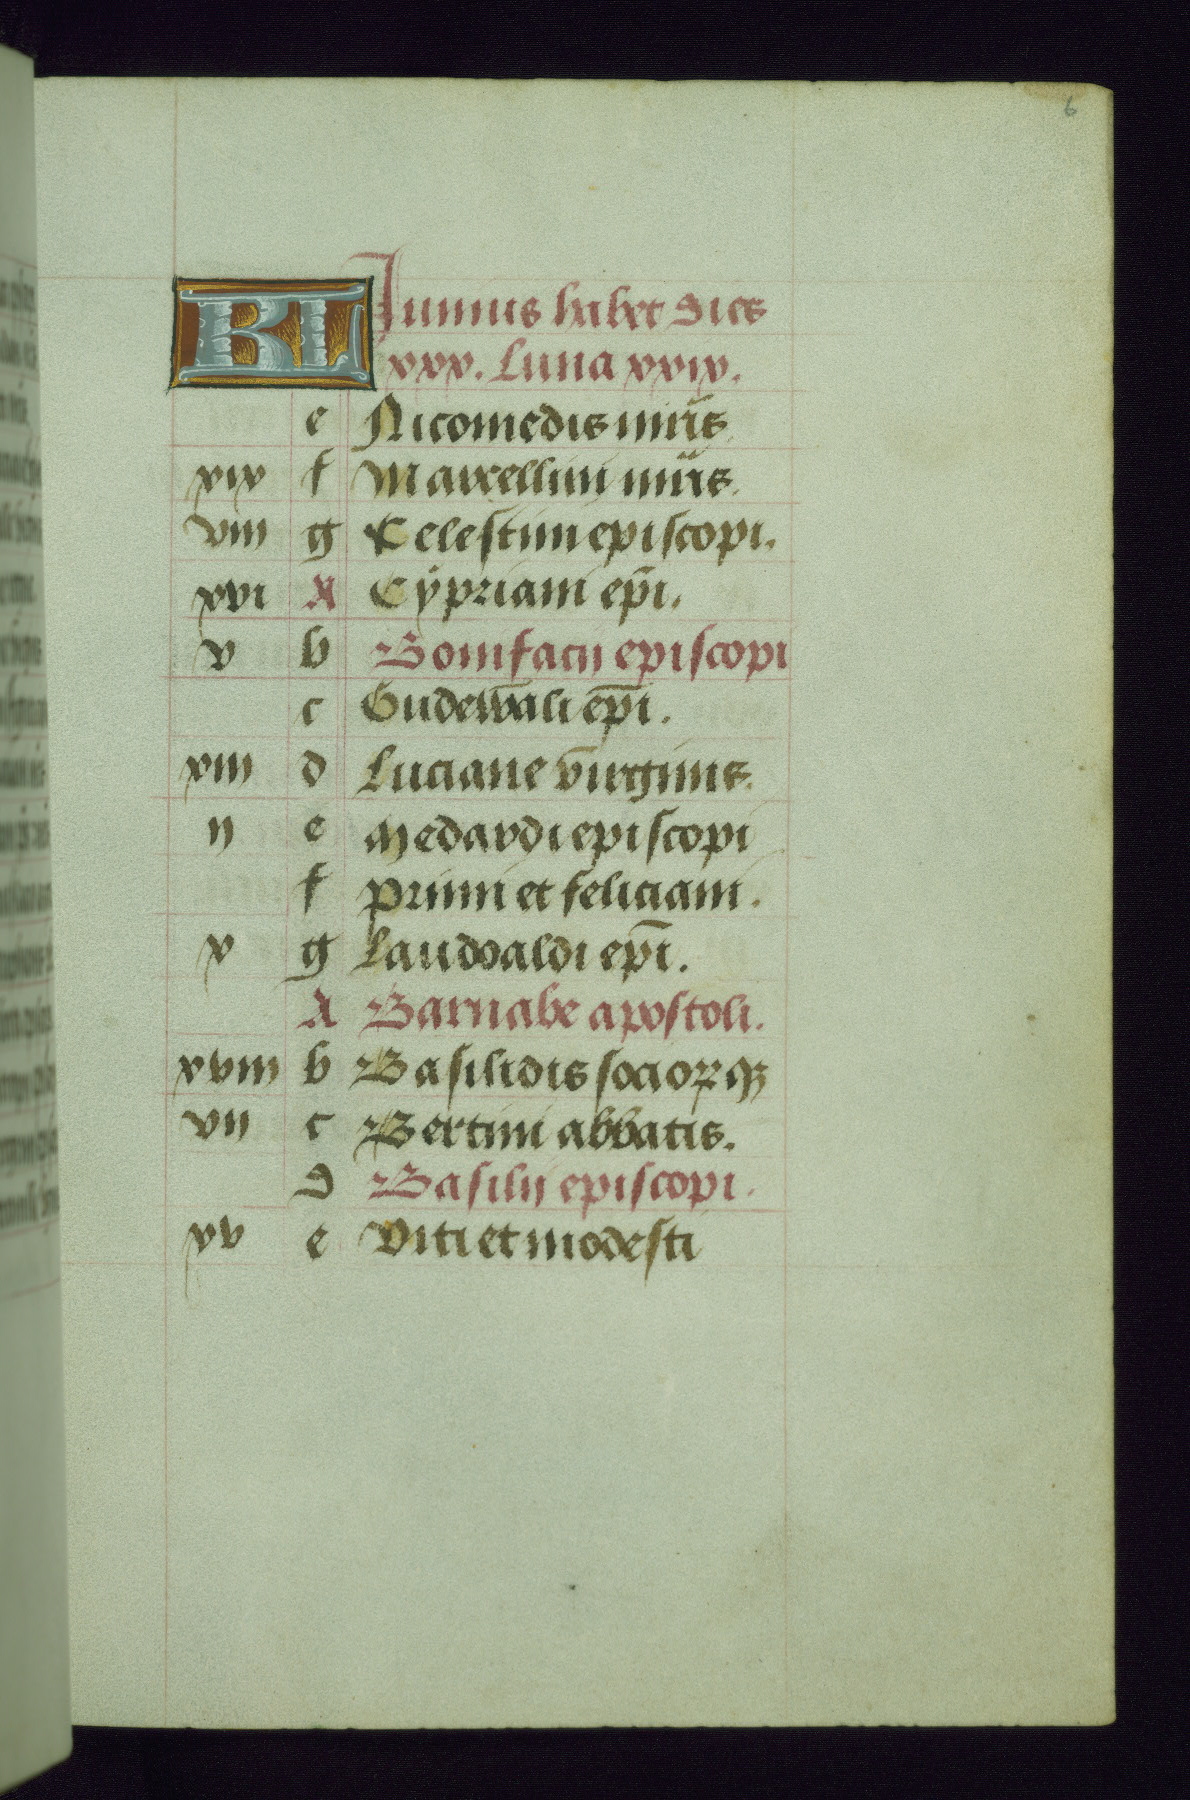 6
KL Junius habet dies
xxx. Luna xxix.
e Nicomedis mr̄is
xix f Marcellini mr̄is.
viii g Celestini episcopi.
xvi A Cypriani ep̄i.
v b Bonifacij episcopi
c Gudewali ep̄i.
xiii d Luciane virginis.
ij e Medardi episcopi
f Primi et feliciani.
x g Laudoaldi ep̄i.
A Barnabe apostoli.
xviii b Basilidis sociorꝫ qꝫ
vii c Bertini abbatis.
d Basilij episcopi.
xv e Viti et modesti